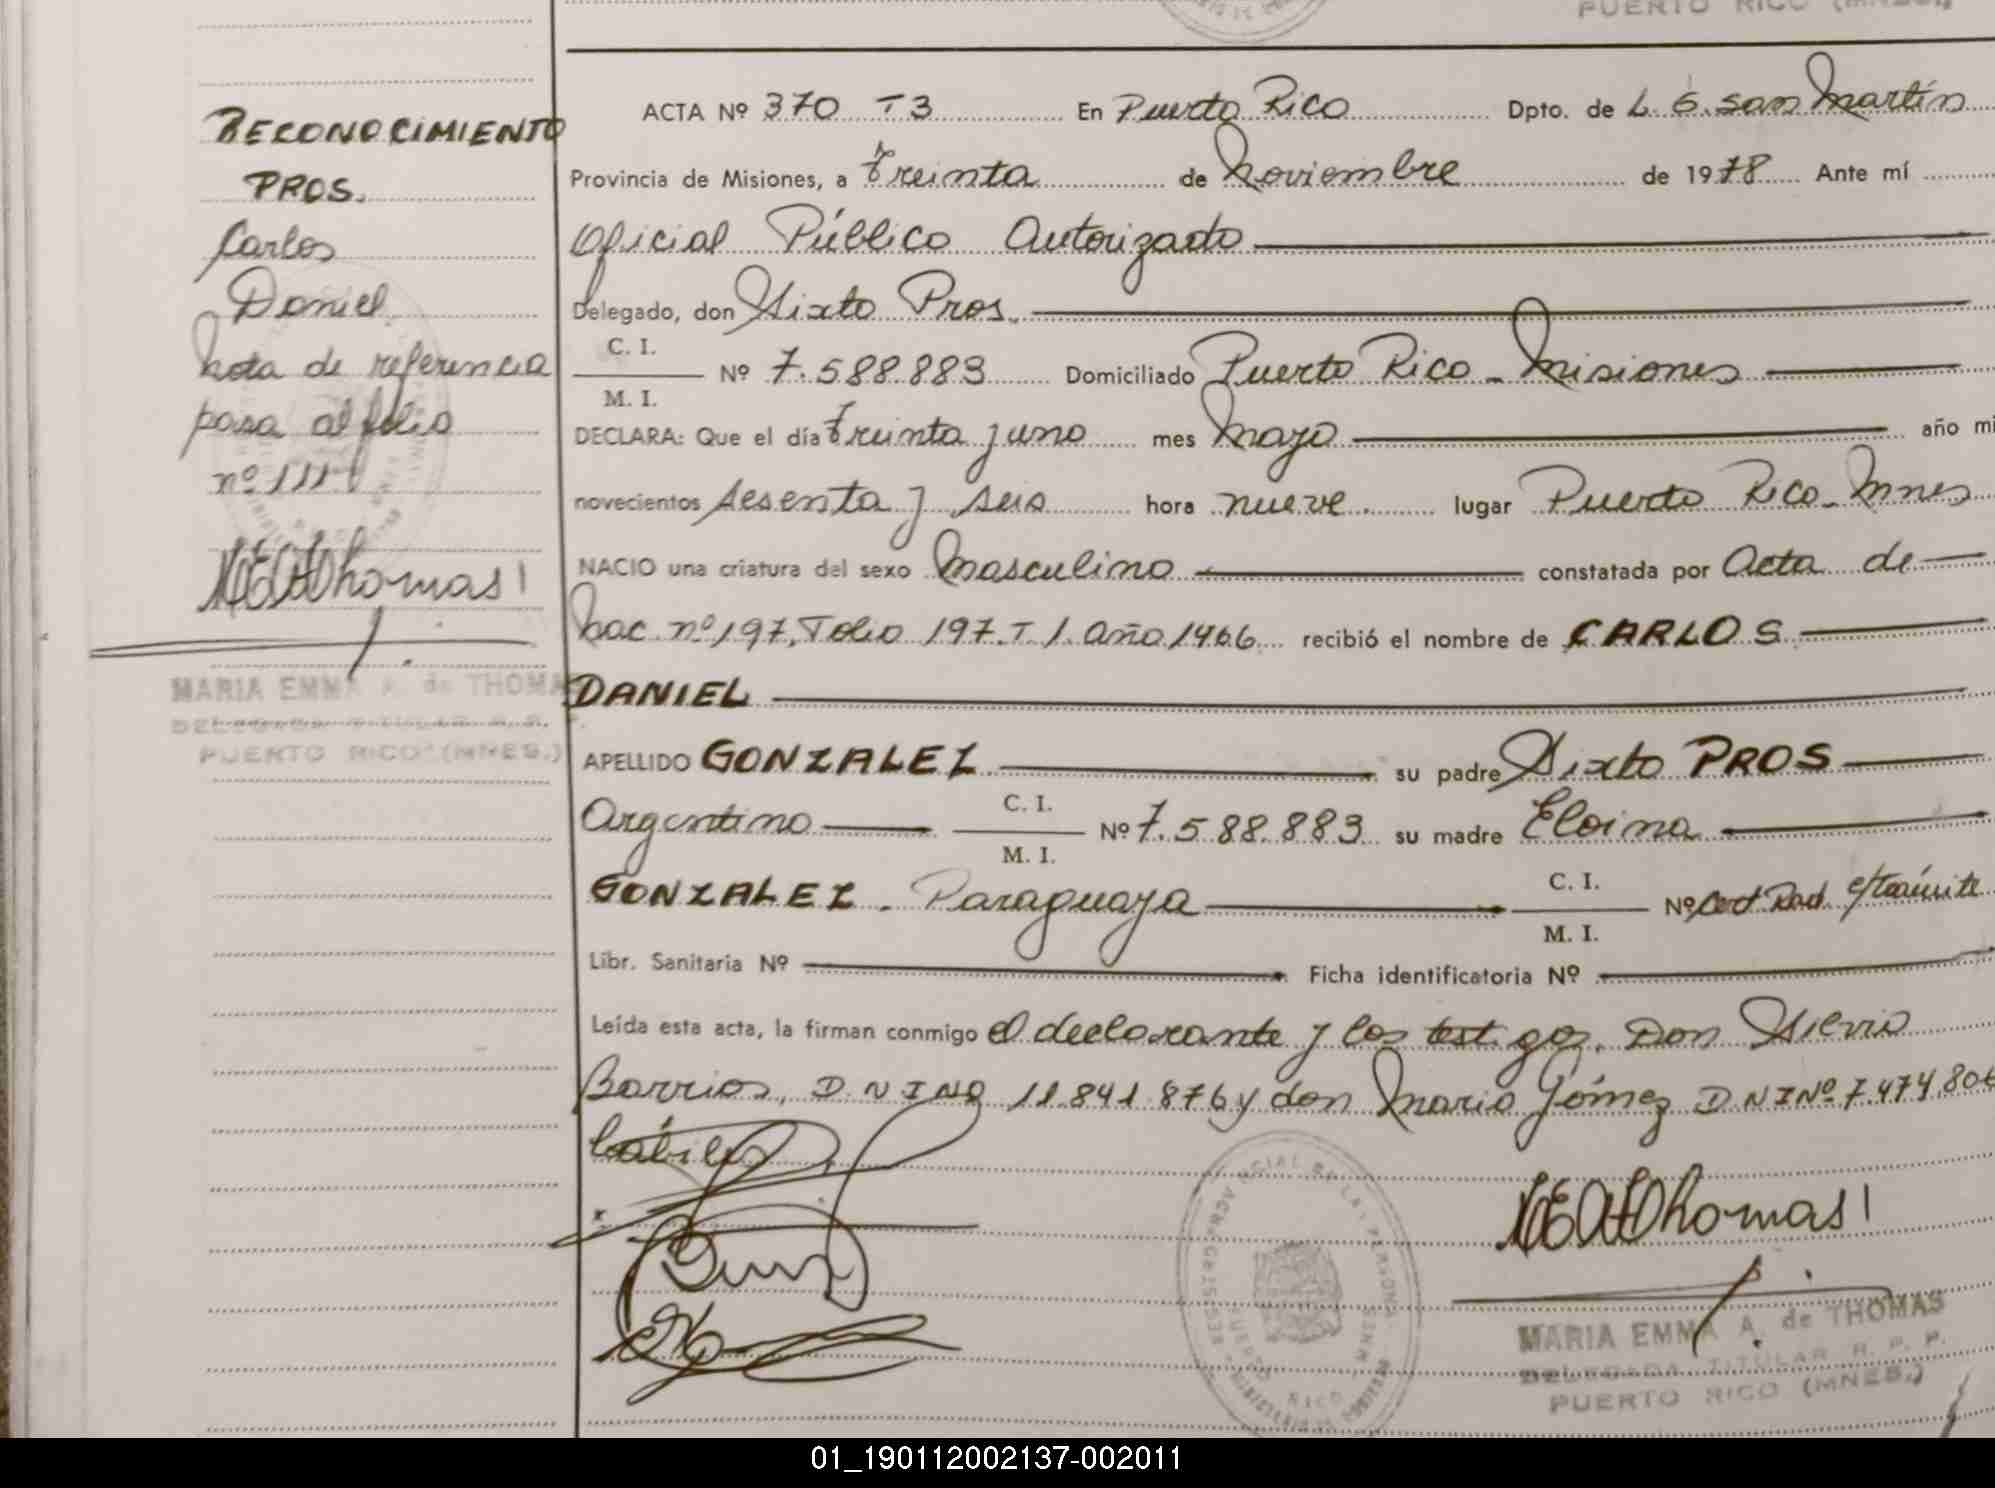 PUERTO RICO (MNES.)
RECONOCIMIENTO
PROS.
Carlos
Daniel
nota de referencia
para al folio
nº 111
MEAThomas
MARIA EMMA A. de THOMAS
DELEGADA TITULAR R. P. P.
PUERTO RICO (MNES.)
ACTA Nº 370 T3 En Puerto Rico Dpto. de L. G. San Martín
Provincia de Misiones, a treinta de Noviembre de 1978 Ante mí
Oficial Público Autorizado
Delegado, don Sixto Pros.
C. I.
M. I.
Nº 7.588.883 Domiciliado Puerto Rico - Misiones
DECLARA: Que el día treinta y uno mes Mayo año mi
novecientos sesenta y seis hora nueve. lugar Puerto Rico - Mnes
NACIO una criatura del sexo Masculino constatada por Acta de
Nac. nº 197, Folio 197. T 1. Año 1966 recibió el nombre de CARLOS
DANIEL
APELLIDO GONZALEZ su padre Sixto PROS
Argentino C. I. M. I. Nº 7.588.883 su madre Eloina
GONZALEZ. Paraguaya C. I. M. I. Nº Cert Rad. e/trámite
Libr. Sanitaria Nº Ficha identificatoria Nº
Leída esta acta, la firman conmigo el declarante y los testigos. Don Silvio
Barrios, D.N.I Nº 11.841.876 y don Mario Gómez D.N.I Nº 7.474.806
hábiles
MEAThomas
MARIA EMMA A. de THOMAS
DELEGADA TITULAR R. P. P.
PUERTO RICO (MNES.)
01_190112002137-002011